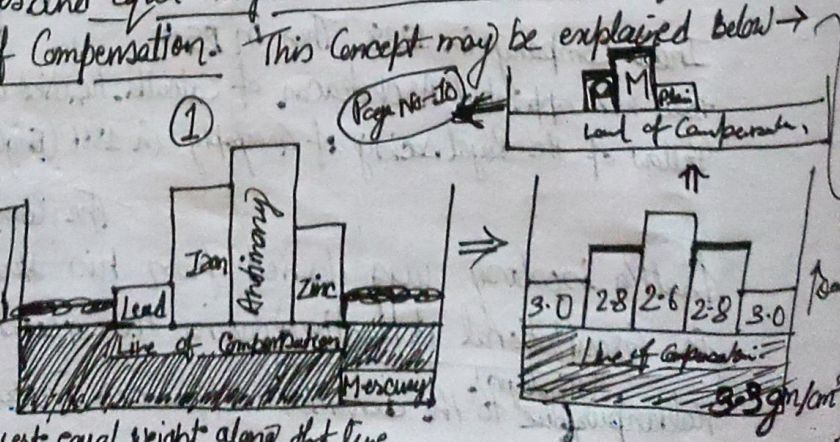 of Compensation. This Concept may be explained below →
Page No-10
P M Plain
Level of Compensation,
1
Lead Iron Antimony Zinc
Line of Compensation
Mercury
⇒
⇑
3.0 2.8 2.6 2.8 3.0
Line of Compensation
3.3 gm/cm³
equal weight along that line